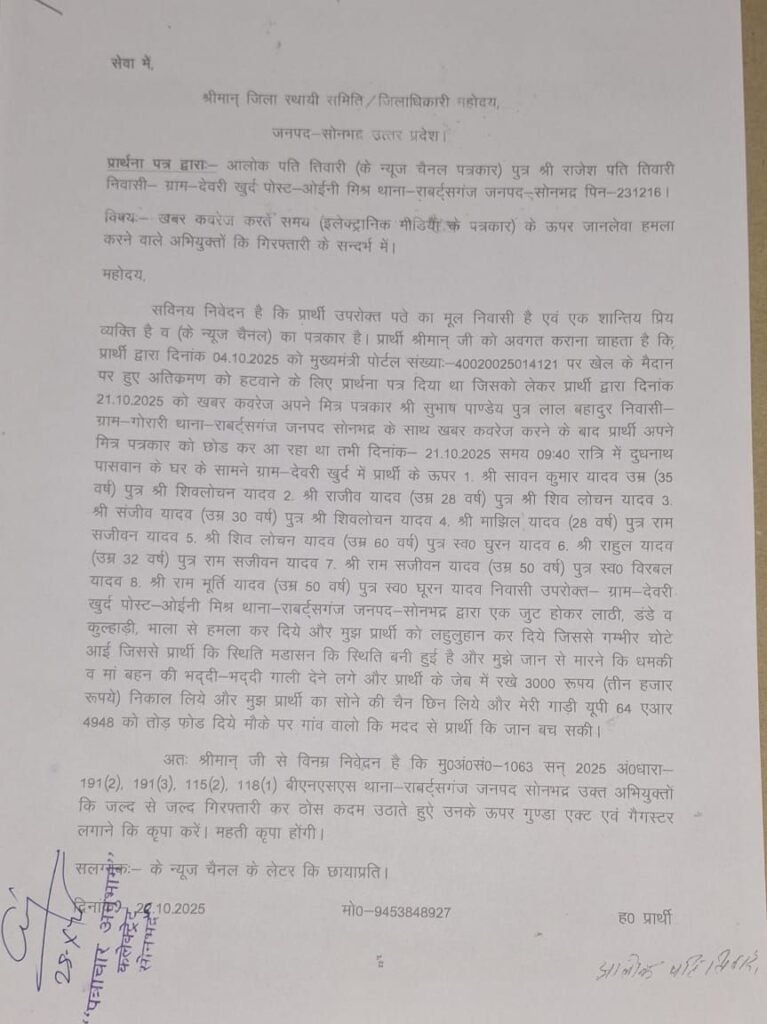 सेवा में,
श्रीमान् जिला स्थायी समिति/जिलाधिकारी महोदय,
जनपद–सोनभद्र उत्तर प्रदेश।
प्रार्थना पत्र द्वाराः– आलोक पति तिवारी (के न्यूज चैनल पत्रकार) पुत्र श्री राजेश पति तिवारी
निवासी– ग्राम–देवरी खुर्द पोस्ट–ओईनी मिश्र थाना–राबर्ट्सगंज जनपद–सोनभद्र पिन–231216।
विषयः– खबर कवरेज करते समय (इलेक्ट्रानिक मीडिया के पत्रकार) के ऊपर जानलेवा हमला
करने वाले अभियुक्तों कि गिरफ्तारी के सन्दर्भ में।
महोदय,
सविनय निवेदन है कि प्रार्थी उपरोक्त पते का मूल निवासी है एवं एक शान्तिय प्रिय
व्यक्ति है व (के न्यूज चैनल) का पत्रकार है। प्रार्थी श्रीमान् जी को अवगत कराना चाहता है कि,
प्रार्थी द्वारा दिनांक 04.10.2025 को मुख्यमंत्री पोर्टल संख्याः–40020025014121 पर खेल के मैदान
पर हुए अतिकमण को हटवाने के लिए प्रार्थना पत्र दिया था जिसको लेकर प्रार्थी द्वारा दिनांक
21.10.2025 को खबर कवरेज अपने मित्र पत्रकार श्री सुभाष पाण्डेय पुत्र लाल बहादुर निवासी–
ग्राम–गोरारी थाना–राबर्ट्सगंज जनपद सोनभद्र के साथ खबर कवरेज करने के बाद प्रार्थी अपने
मित्र पत्रकार को छोड कर आ रहा था तभी दिनांक– 21.10.2025 समय 09:40 रात्रि में दुधनाथ
पासवान के घर के सामने ग्राम–देवरी खुर्द में प्रार्थी के ऊपर 1. श्री सावन कुमार यादव उम्र (35
वर्ष) पुत्र श्री शिवलोचन यादव 2. श्री राजीव यादव (उम्र 28 वर्ष) पुत्र श्री शिव लोचन यादव 3.
श्री संजीव यादव (उम्र 30 वर्ष) पुत्र श्री शिवलोचन यादव 4. श्री माझिल यादव (28 वर्ष) पुत्र राम
सजीवन यादव 5. श्री शिव लोचन यादव (उम्र 60 वर्ष) पुत्र स्व0 घुरन यादव 6. श्री राहुल यादव
(उम्र 32 वर्ष) पुत्र राम सजीवन यादव 7. श्री राम सजीवन यादव (उम्र 50 वर्ष) पुत्र स्व0 विरबल
यादव 8. श्री राम मूर्ति यादव (उम्र 50 वर्ष) पुत्र स्व0 घूरन यादव निवासी उपरोक्त– ग्राम–देवरी
खुर्द पोस्ट–ओईनी मिश्र थाना–राबर्ट्सगंज जनपद–सोनभद्र द्वारा एक जुट होकर लाठी, डंडे व
कुल्हाड़ी, भाला से हमला कर दिये और मुझ प्रार्थी को लहुलुहान कर दिये जिससे गम्भीर चोटे
आई जिससे प्रार्थी कि स्थिति मडासन कि स्थिति बनी हुई है और मुझे जान से मारने कि धमकी
व मां बहन की भद्दी–भद्दी गाली देने लगे और प्रार्थी के जेब में रखे 3000 रूपय (तीन हजार
रूपये) निकाल लिये और मुझ प्रार्थी का सोने की चैन छिन लिये और मेरी गाड़ी यूपी 64 एआर
4948 को तोड़ फोड दिये मौके पर गांव वालो कि मदद से प्रार्थी कि जान बच सकी।
अतः श्रीमान् जी से विनम्र निवेदन है कि मु0अं0सं0–1063 सन् 2025 अं0धारा–
191(2), 191(3), 115(2), 118(1) बीएनएसएस थाना–राबर्ट्सगंज जनपद सोनभद्र उक्त अभियुक्तों
कि जल्द से जल्द गिरफ्तारी कर ठोस कदम उठाते हुऐ उनके ऊपर गुण्डा एक्ट एवं गैगस्टर
लगाने कि कृपा करें। महती कृपा होंगी।
सलग्नकः– के न्यूज चैनल के लेटर कि छायाप्रति।
दिनांक– .10.2025
मो0–9453848927
ह0 प्रार्थी
आलोक पति तिवारी
"पत्राचार अनुभाग"
कलेक्ट्रेट
सोनभद्र